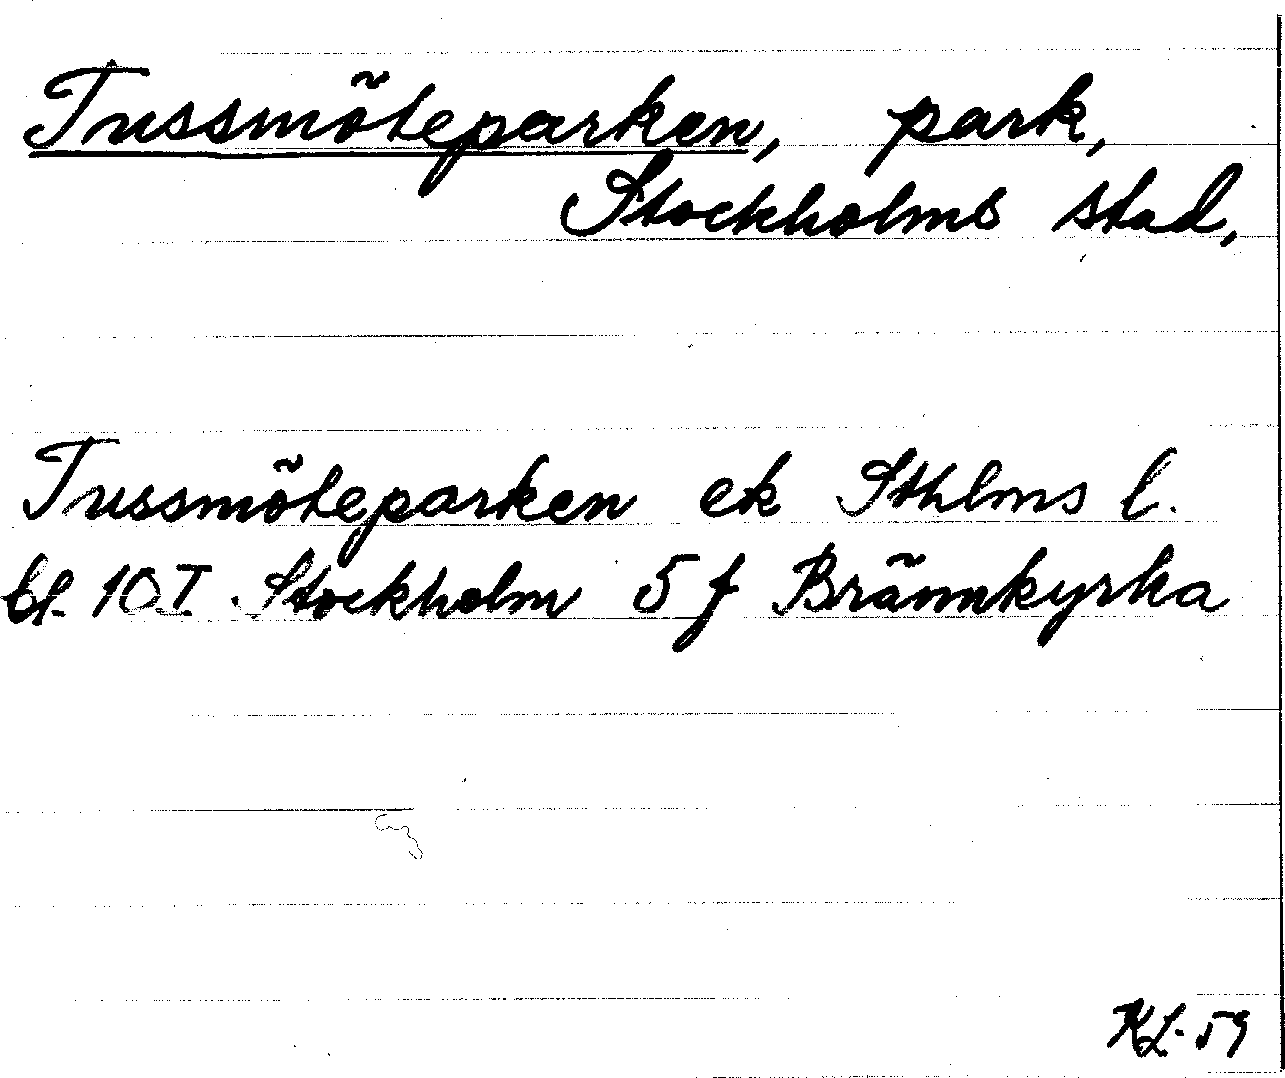 Tussmöteparken, park,
Stockholms stad,
Tussmöteparken ek Sthlms l.
bl. 10 I Stockholm 5 f Brännkyrka
KL-59